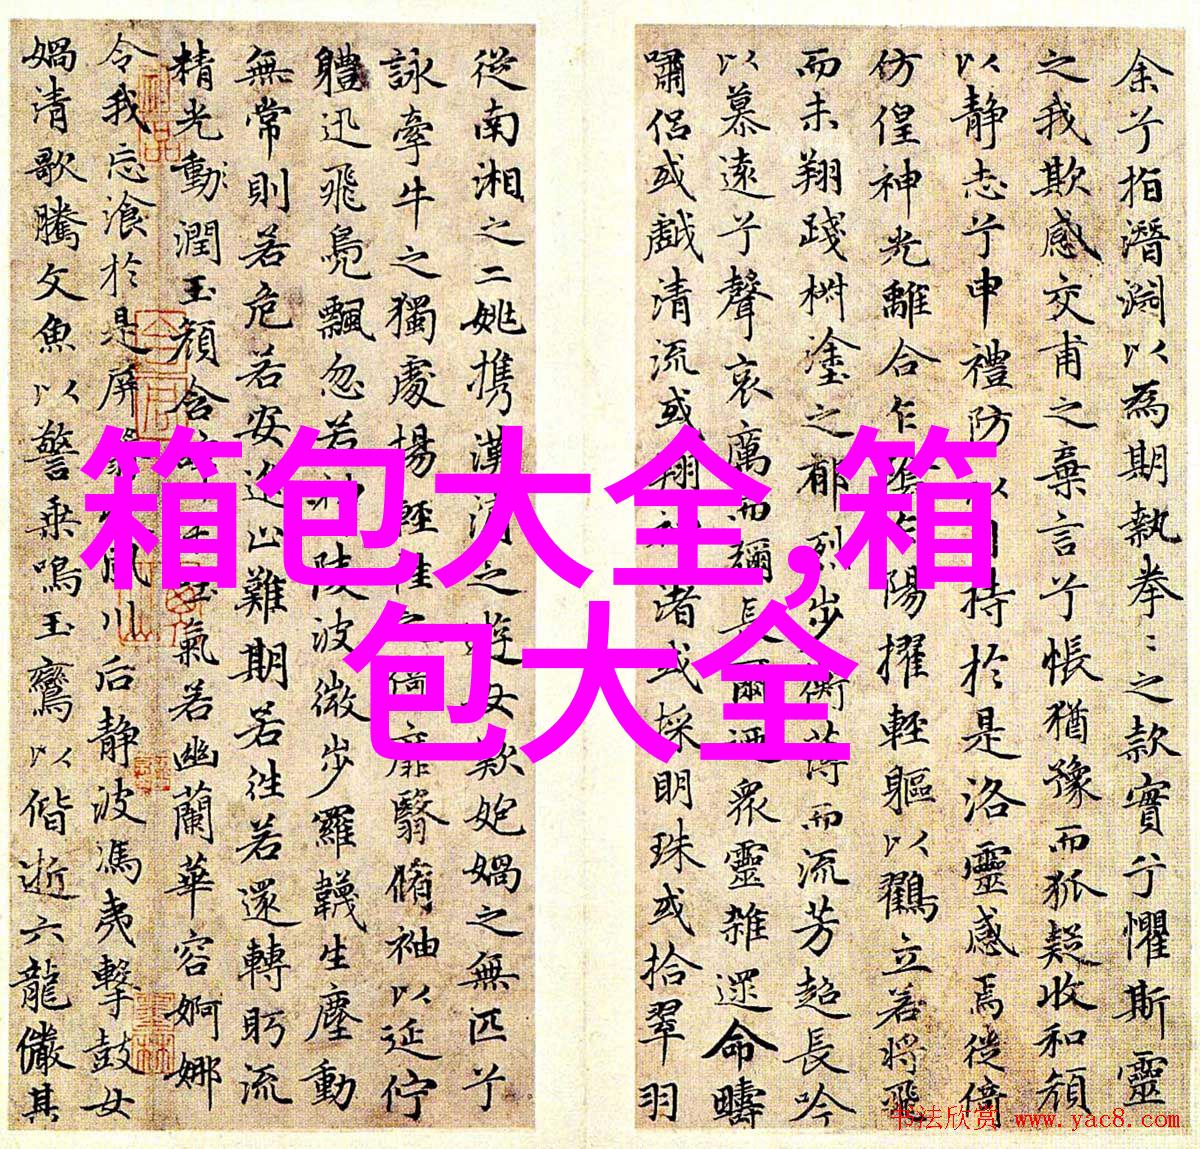 余兮指潛淵以為期執拳〻之款實兮懼斯靈
之我欺感交甫之棄言兮悵猶豫而狐疑收和顏
以静志兮申禮防以自持於是洛靈感焉徙倚
仿偟神光離合乍陰乍陽擢輕軀以鶴立若將飛
而未翔踐椒塗之郁烈步衡薄而流芳超長吟
以慕遠兮聲哀厲而彌長爾迺衆靈雜遝命疇
嘯侣或戲清流或翔神渚或採明珠或拾翠羽
從南湘之二姚携漢濱之遊女歎匏媧之無匹兮
詠牽牛之獨處揚輕袿之猗靡翳脩袖以延佇
體迅飛鳧飄忽若神陵波微步羅韈生塵動
無常則若危若安進止難期若往若還轉眄流
精光動潤玉顔含辭未吐氣若幽蘭華容婀娜
令我忘飡於是屏翳收風川后静波馮夷擊鼓女
媧清歌騰文魚以警乘鳴玉鸞以偕逝六龍儼其
箱包大全,箱
包大全
书法欣赏 www.yac8.com